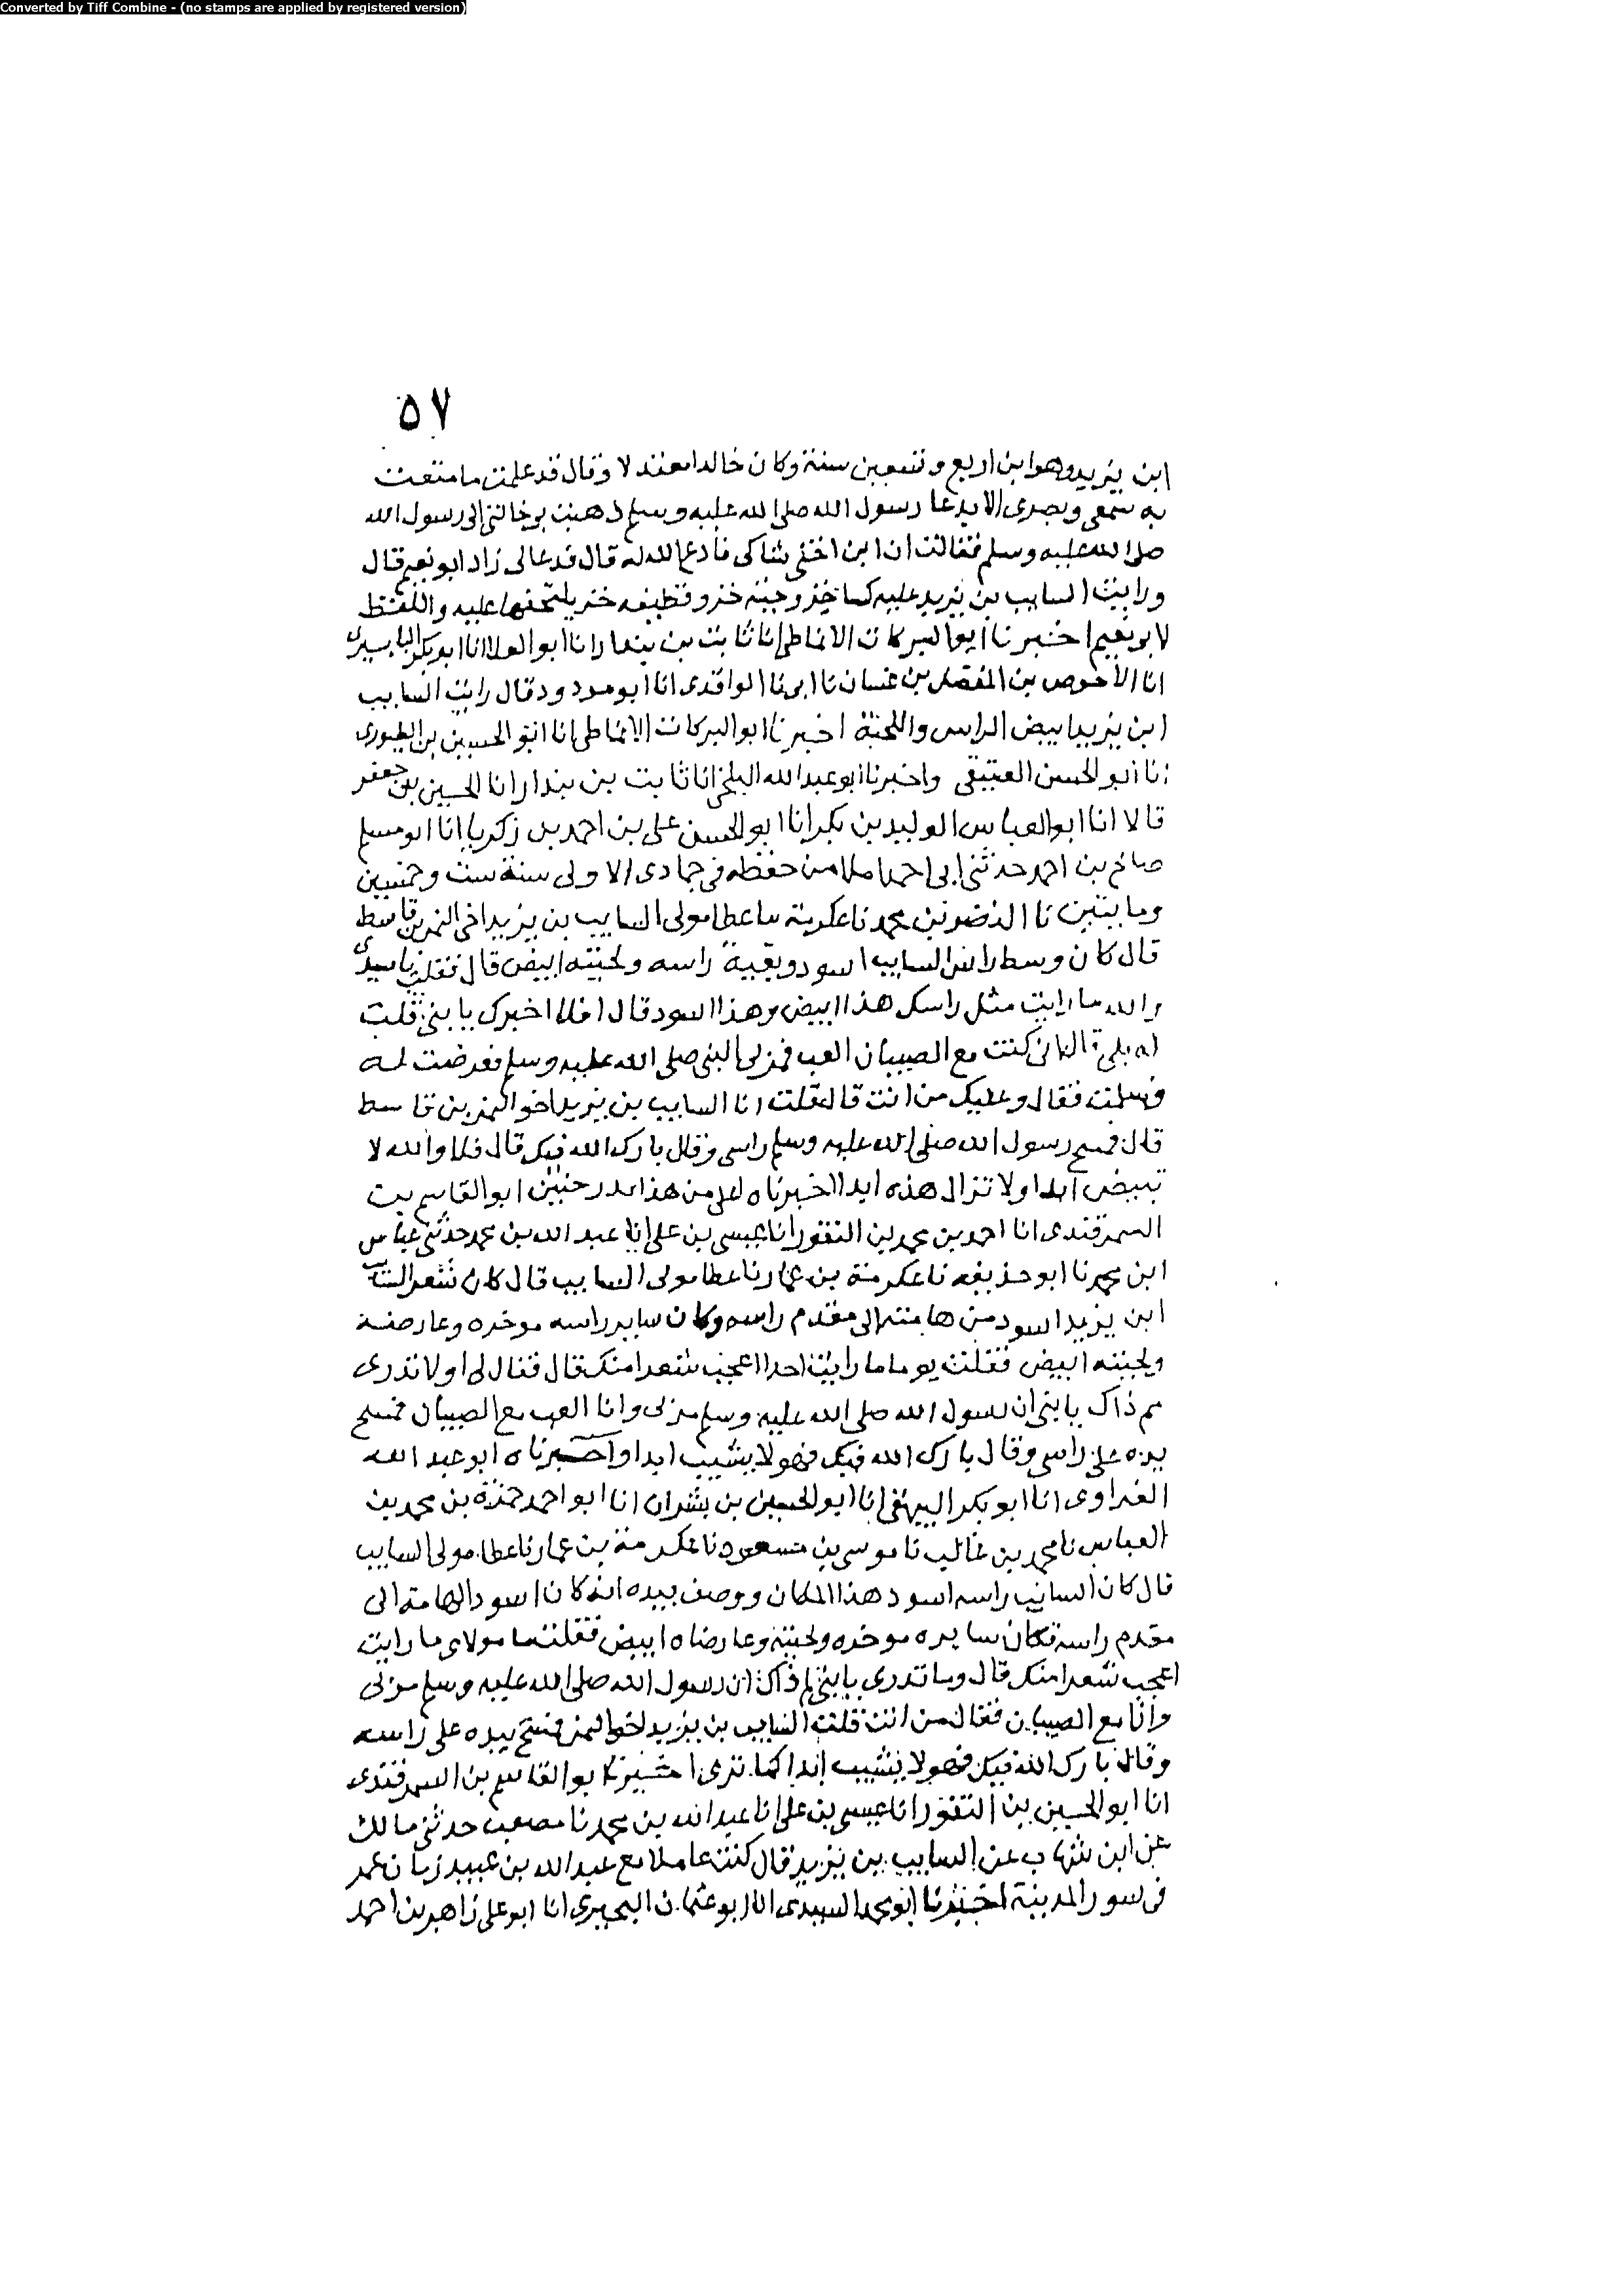 Converted by Tiff Combine - (no stamps are applied by registered version)
٥٧
ابن يزيد وهو ابن اربع وتسعين سنة وكان خالدا معتدلا وقال قد علمت ما متعت
به سمعي وبصري الا بدعا رسول الله صلى الله عليه وسلم ذهبت بي خالتي الى رسول الله
صلى الله عليه وسلم فقالت ان ابن اختي شاكي فادع الله له قال فدعا لى زاد ابو نعيم قال
ورايت السايب بن يزيد عليه كسا خز وجبة خز وقطيفه خز يلتحفها عليه واللفظ
لابو نعيم اخبرنا ابو البركات الانماطي انا ثابت بن بندار انا ابو العلا انا ابو بكر البابسيرى
انا الاحوص بن المفضل بن غسان نا ابي نا الواقدى انا ابو مودود قال رايت السايب
ابن يزيد ابيض الراس واللحية اخبرنا ابو البركات الانماطي انا ابو الحسين بن الطيورى
انا ابو الحسن العتيقى واخبرنا ابو عبد الله البلخي انا ثابت بن بندار انا الحسين بن جعفر
قالا انا ابو العباس الوليد بن بكر انا ابو الحسن على بن احمد بن زكريا انا ابو مسلم
صالح بن احمد حدثني ابي احمد املا من حفظه في جمادى الاولى سنة ست وخمسين
ومايتين نا النضر بن محمد نا عكرمة نا عطا مولى السايب بن يزيد اخى النمر بن قاسط
قال كان وسط راس السايب اسود وبقية راسه ولحيته ابيض قال فقلت يا سيدى
والله ما رايت مثل راسك هذا ابيض وهذا اسود قال افلا اخبرك يا بني قلت
له بلى قال انى كنت مع الصبيان العب فمر بى النبي صلى الله عليه وسلم فعرضت له
فسلمت فقال وعليك من انت قال فقلت انا السايب بن يزيد اخو النمر بن قاسط
قال فمسح رسول الله صلى الله عليه وسلم راسي وقال بارك الله فيك قال فلا والله لا
تبيض ابدا ولا تزال هذه ابدا اخبرناه اعلى من هذا بدرجتين ابو القاسم بن
السمرقندى انا احمد بن محمد بن النقور انا عيسى بن على انا عبد الله بن محمد حدثني عباس
ابن محمد نا ابو حذيفه نا عكرمة بن عمار نا عطا مولى السايب قال كان شعر السايب
ابن يزيد اسود من هامته الى مقدم راسه وكان ساير راسه موخره وعارضه
ولحيته ابيض فقلت يوما ما رايت احدا اعجب شعرا منك قال فقال لى اولا تدرى
مم ذاك يا بني ان رسول الله صلى الله عليه وسلم مر بى وانا العب مع الصبيان فمسح
يده على راسي وقال بارك الله فيك فهو لا يشيب ابدا واخبرناه ابو عبد الله
الفراوى انا ابو بكر البيهقي انا ابو الحسين بن بشران انا ابو احمد حمزة بن محمد بن
العباس نا محمد بن غالب نا موسى بن مسعود نا عكرمة بن عمار نا عطا مولى السايب
قال كان السايب راسه اسود هذا المكان ووصف بيده انه كان اسود الهامة الى
مقدم راسه وكان سايره موخره ولحيته وعارضاه ابيض فقلت يا مولاى ما رايت
اعجب شعرا منك قال وما تدرى يا بني لم ذاك ان رسول الله صلى الله عليه وسلم مر بى
وانا مع الصبيان فقال من انت قلت السايب بن يزيد اخو النمر فمسح بيده على راسه
وقال بارك الله فيك فهو لا يشيب ابدا كما ترى اخبرنا ابو القاسم بن السمرقندى
انا ابو الحسين بن النقور انا عيسى بن على انا عبد الله بن محمد نا مصعب حدثني مالك
عن ابن شهاب عن السايب بن يزيد قال كنت عاملا مع عبد الله بن عبيد زمان عمر
فى سور المدينة اخبرنا ابو محمد السيدى انا ابو عثمان البحيرى انا ابو على زاهر بن احمد